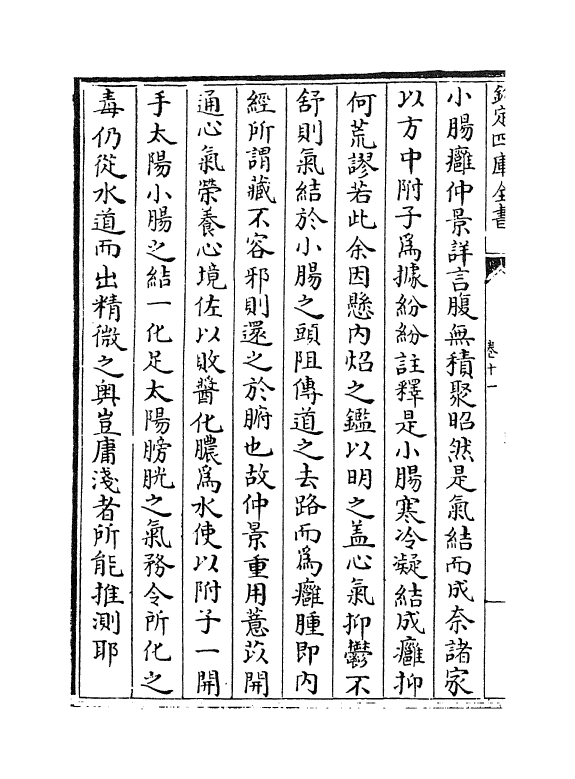 欽定四庫全書
卷十一
小腸癰仲景詳言腹無積聚昭然是氣結而成奈諸家
以方中附子爲據紛紛註釋是小腸寒冷凝結成癰抑
何荒謬若此余因懸内炤之鑑以明之盖心氣抑鬱不
舒則氣結於小腸之頭阻傳道之去路而爲癰腫即内
經所謂藏不容邪則還之於腑也故仲景重用薏苡開
通心氣榮養心境佐以敗醬化膿爲水使以附子一開
手太陽小腸之結一化足太陽膀胱之氣務令所化之
毒仍從水道而出精微之奥豈庸淺者所能推測耶